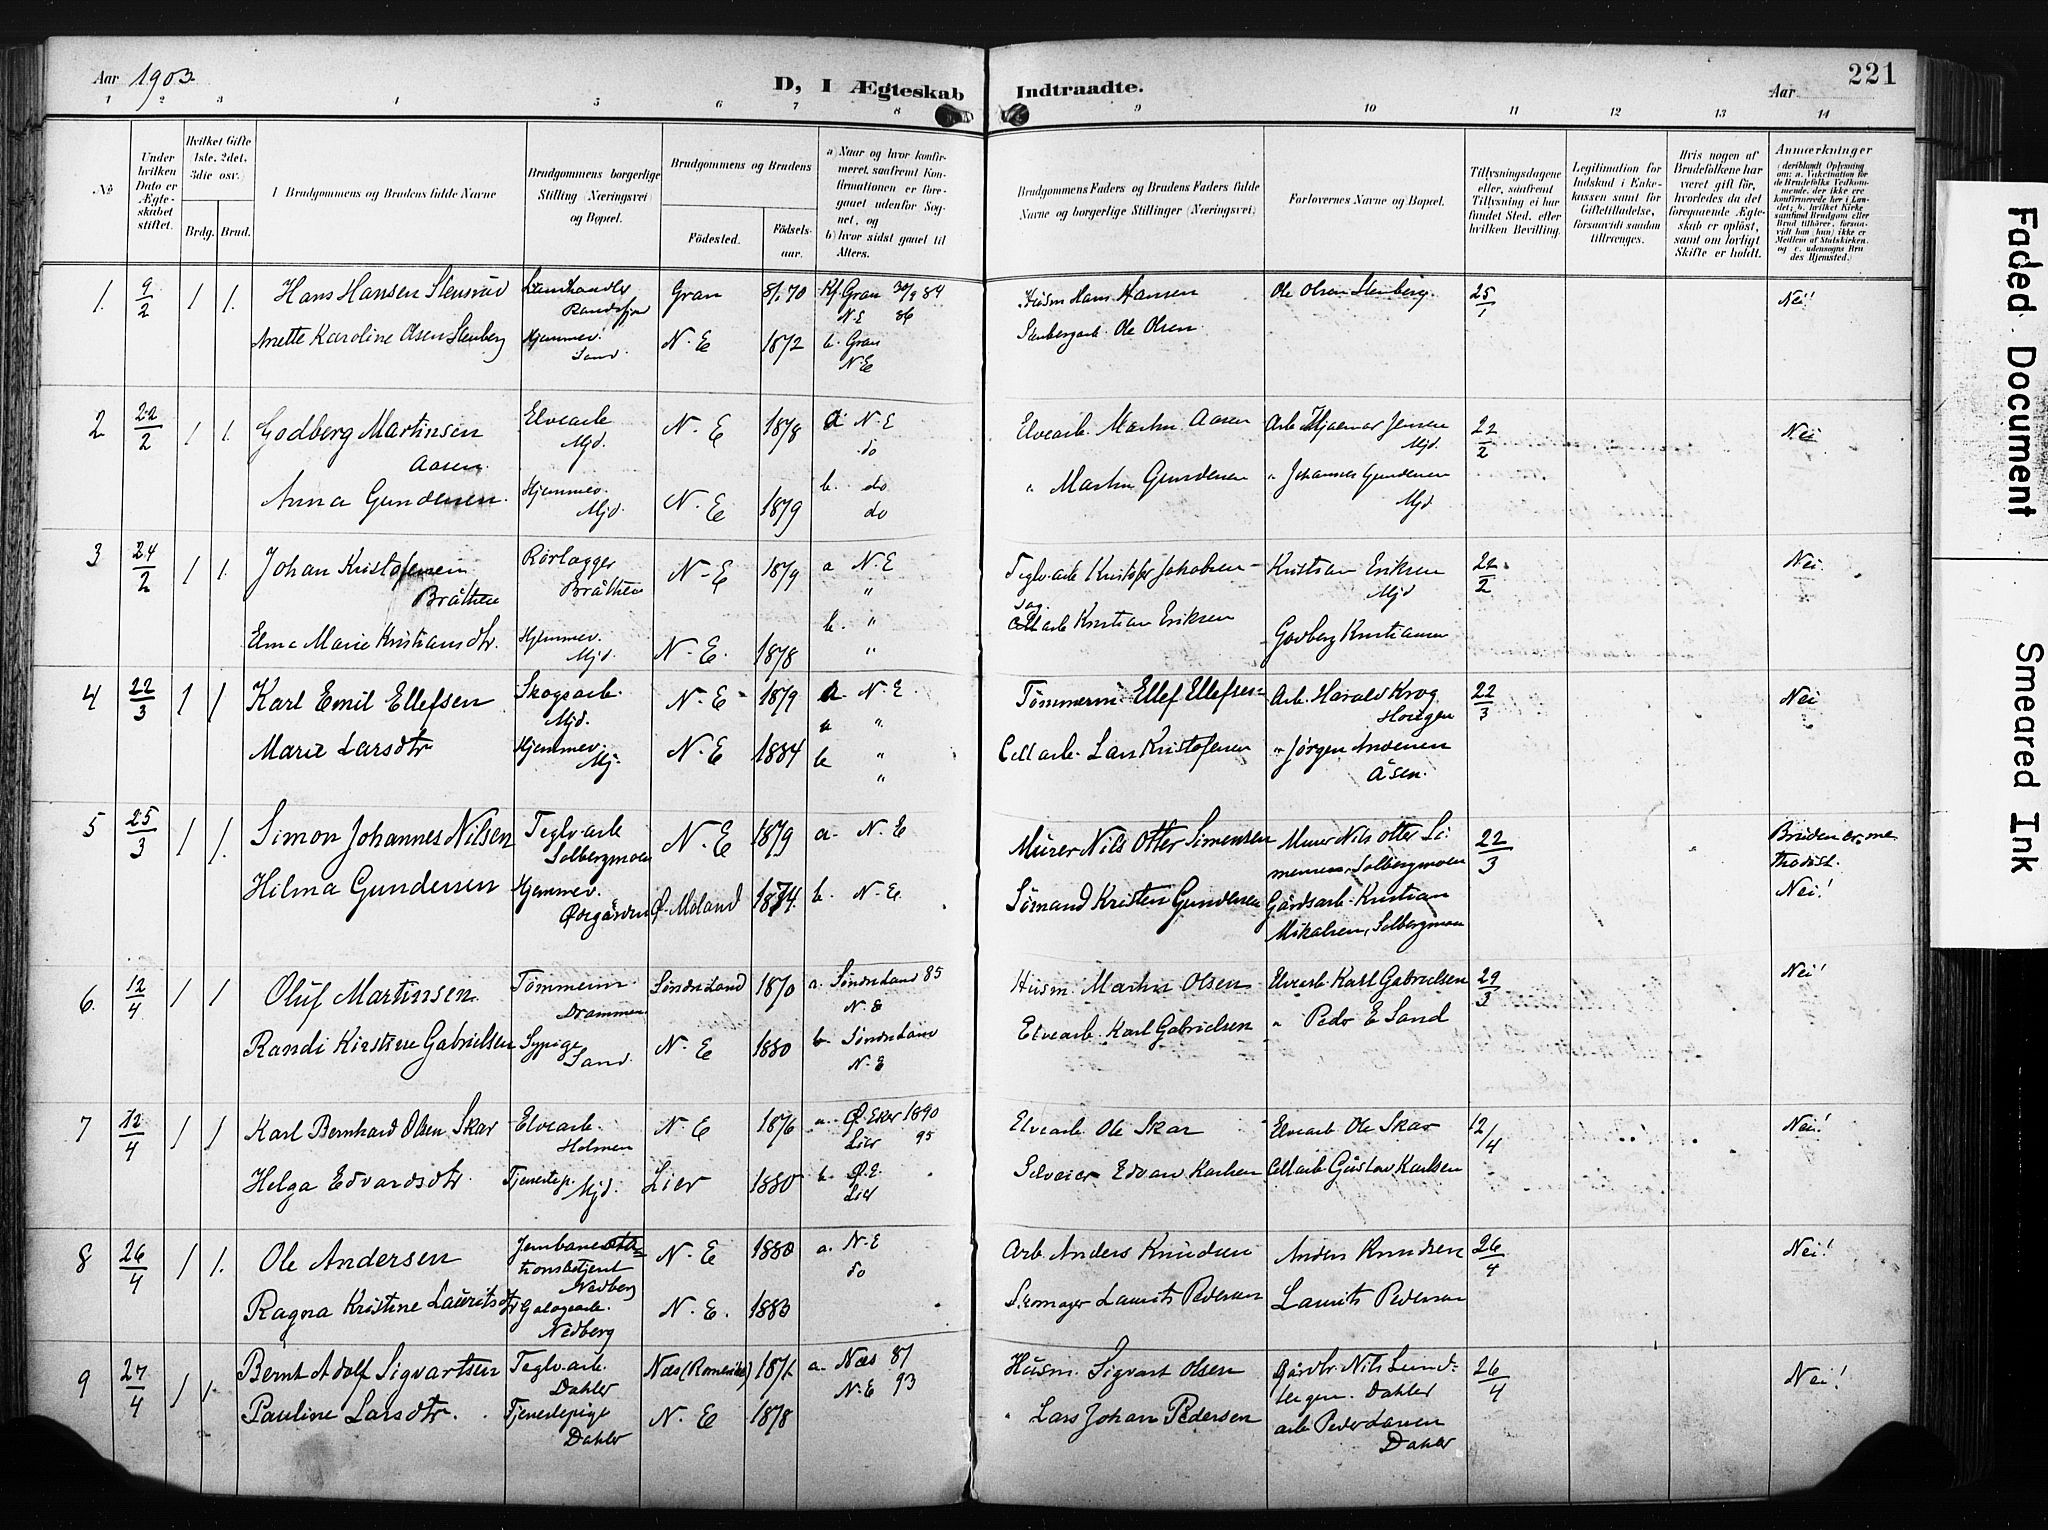 Aar 1903
D, I Ægteskab Indtraadte.
Aar
221
1 2 3 4 5 6 7 8 9 10 11 12 13 14
No
Under hvilken Dato er Ægteskabet stiftet.
Hvilket Gifte 1ste, 2det, 3die osv.)
Brdg. Brud.
Brudgommens og Brudens fulde Navne
Brudgommens borgerlige Stilling (Næringsvei) og Bopæl.
Brudgommens og Brudens
Födested.
Födselsaar.
a) Naar og hvor konfirmeret, saafremt Konfirmationen er foregaaet udenfor Sognet, og
b) hvor sidst gaaet til Alters.
Brudgommens Faders og Brudens Faders fulde Navne og borgerlige Stillinger (Næringsvei)
Forlovernes Navne og Bopæl.
Tillysningsdagene eller, saafremt Tillysning ei har fundet Sted, efter hvilken Bevilling.
Legitimation for Indskud i Enkekassen samt for Giftetilladelse, forsaavidt saadan tiltrænges.
Hvis nogen af Brudefolkene har været gift før, hvorledes da det foregaaende Ægteskab er opløst, samt om lovligt Skifte er holdt.
Anmærkninger
(deriblandt Oplysning om: a. Vakcination for de Brudefolks Vedkommende, der ikke ere konfirmerede her i Landet; b. hvilket Kirkesamfund Brudgom eller Brud tilhører, forsaavidt han (hun) ikke er Medlem af Statskirken, og c. udensogns Brudes Hjemsted.)
1. 9/2 1 1. Hans Hansen Stensrud Gran 8/1 70 Kf. Gran 30/9 84 Husm Hans Hansen Ole Olsen Stenberg. 25/1 Nei!
N.E 86
Anette Karoline Olsen Stenberg Hjemmev. Sand. N.E 1872 b. Gran Ole Olsen
N.E
2 22/2 1 1. Godberg Martinsen Aasen. Elvearb Mjd. N.E 1878 a N.E Elvearb. Martin Aasen Arb Hjalmar Jensen Mjd. 22/2 Nei
do
Anna Gundersen. Hjemmev. Mjd. N.E 1879 b. do " Martin Gundersen " Johannes Gundersen Mjd
do
3 24/2 1 1. Johan Kristofersen Bråthen Rørlægger Bråthen N-E 1879 a N.E Teglv.arb Kristofer Jakobsen Kristian Eriksen Mjd 22/2 Nei
"
Elma Marie Kristiansdtr. Hjemmev. Mjd. N-E. 1878 b. " Kristian Eriksen Godberg Kristiansen
"
4 22/3 1 1 Karl Emil Ellefsen Skogsarb. Mjd. N-E 1879 a N.E Tømmerm. Ellef Ellefsen Arb. Harald Krog Hougen 22/3 Nei
a "
Marie Larsdtr Hjemmev. Mj. N.E 1884 b " Cell arb. Lars Kristofersen " Jørgen Andersen Åsen.
"
5 25/3 1 1. Simon Johannes Nilsen Teglv.arb Solbergmoen N.E 1879 a. N.E Murer Nils Otter Simensen Murer Nils Otter Simensen, Solbergmoen 22/3 Bruden er methodist. Nei!
Hilma Gundersen Hjemmev. Ø. Moland 1874. b. N-E Sømand Kristen Gundersen Gårdsarb. Kristian Mikalsen, Solbergmoen
6. 12/4 1 1 Oluf Martinsen Tømmerm. Drammen. Søndr Land 1870 a. Søndr Land 85 Husm. Martin Olsen Elvearb Karl Gabrielsen 29/3 Nei!
N.E
Randi Kirstine Gabrielsen Sypige Sand. N.E 1880 b Søndr Land Elvearb. Karl Gabrielsen " Peder E Sand
N.E
7 12/4 1 1 Karl Bernhard Olsen Skar Elvearb. Holmen N.E 1876 a. Ø. Eker 1890 Elvearb Ole Skar Elvearb Ole Skar 12/4 Nei!
Lier 95
Helga Edvardsdtr. Tjenestep. Mjd. Lier 1880 b. Ø.E. Selveier Edvard Karlsen Cell arb Gustav Karlsen
Lier
8 26/4 1 1. Ole Andersen Jernbanestationsbetjent Nedberg N.E 1880 a. N.E Arb. Anders Knudsen Anders Knudsen 26/4 Nei!
do
Ragna Kristine Lauritsdtr Nedberg N.E. 1883 Skomager Laurits Pedersen Laurits Pedersen
9 27/4 1 1. Bernt Adolf Sigvartsen Teglv.arb. Dahler Næs (Romerike) 1871 a. Næs 81 Husm. Sigvart Olsen Gårdbr. Nils Lundteigen. Dahler 26/4 Nei!
N.E 93
Pauline Larsdtr. Tjenestepige Dahler N.E 1878 " Lars Johan Pedersen arb Peder Larsen Dahler
Faded Document
Smeared Ink